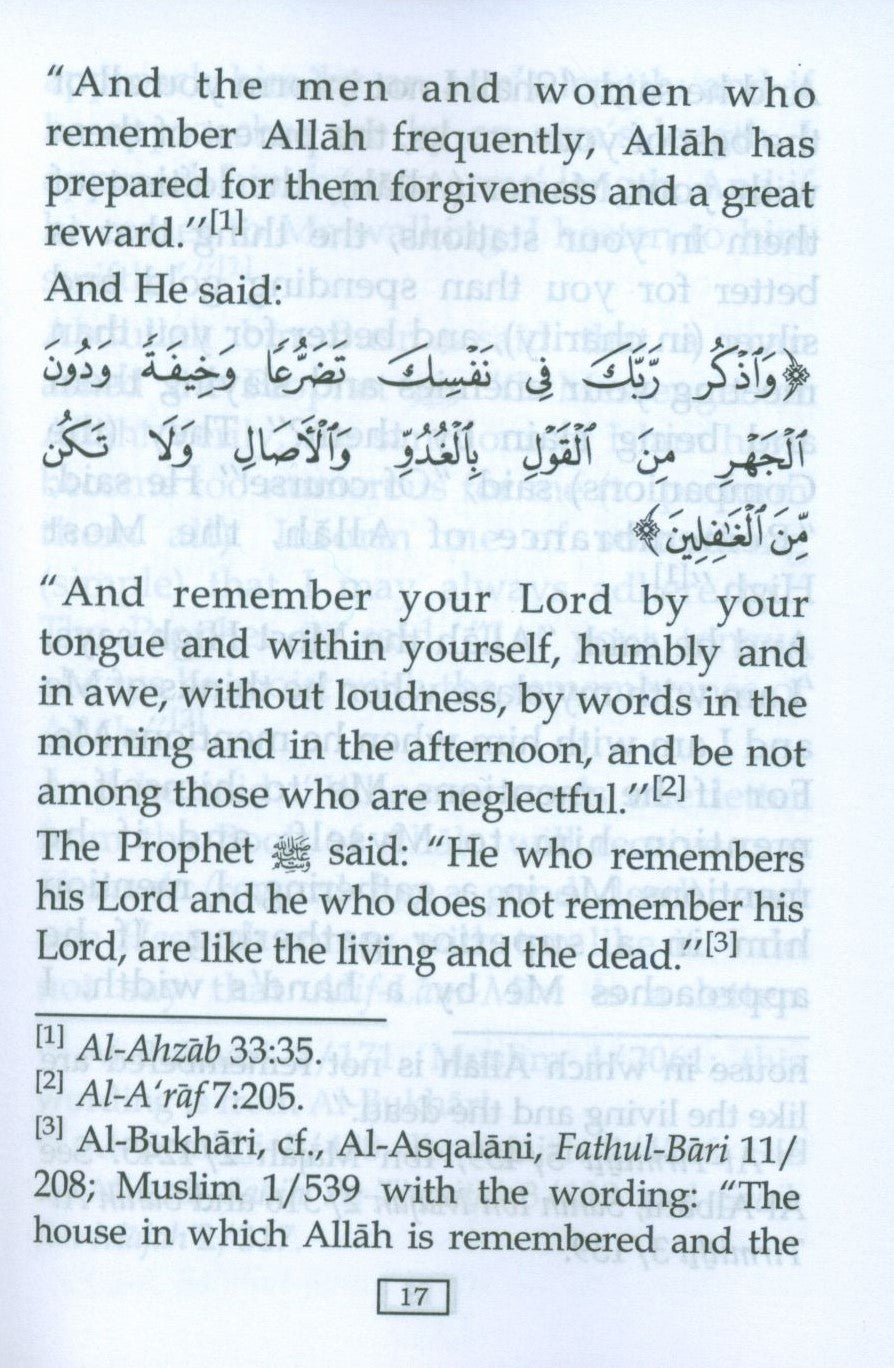 “And the men and women who
remember Allāh frequently, Allāh has
prepared for them forgiveness and a great
reward.”[1]
And He said:
﴿وَٱذۡكُر رَّبَّكَ فِي نَفۡسِكَ تَضَرُّعًا وَخِيفَةً وَدُونَ
ٱلۡجَهۡرِ مِنَ ٱلۡقَوۡلِ بِٱلۡغُدُوِّ وَٱلۡأٓصَالِ وَلَا تَكُن
مِّنَ ٱلۡغَٰفِلِينَ﴾
“And remember your Lord by your
tongue and within yourself, humbly and
in awe, without loudness, by words in the
morning and in the afternoon, and be not
among those who are neglectful.”[2]
The Prophet ﷺ said: “He who remembers
his Lord and he who does not remember his
Lord, are like the living and the dead.”[3]
[1] Al-Ahzāb 33:35.
[2] Al-A‘rāf 7:205.
[3] Al-Bukhāri, cf., Al-Asqalāni, Fathul-Bāri 11/
208; Muslim 1/539 with the wording: “The
house in which Allāh is remembered and the
17